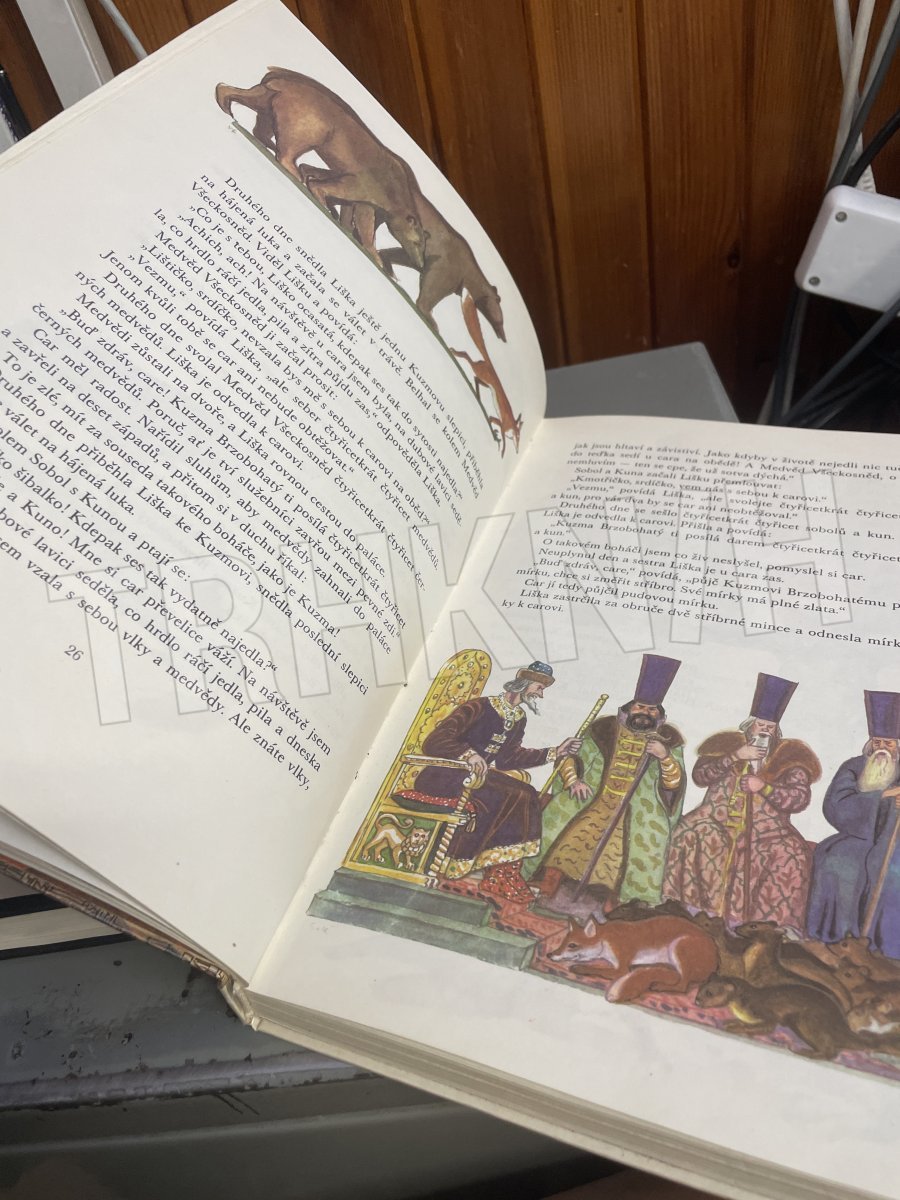 Druhého dne snědla Liška ještě jednu Kuzmovu slepici, přiběhla
na hájená luka a začala se válet v trávě. Belhal se kolem Medvěd
Všeckosněd. Viděl Lišku a povídá:
„Co je s tebou, Liško ocasatá, kdepak ses tak do sytosti najedla?“
„Achich, ach! Na návštěvě u cara jsem byla, na dubové lavici sedě-
la, co hrdlo ráčí jedla, pila a zítra půjdu zas,“ odpověděla Liška.
Medvěd Všeckosněd ji začal prosit:
„Lištičko, srdíčko, nevzala bys mě s sebou k carovi na oběd?“
„Vezmu,“ povídá Liška, „ale seber čtyřicetkrát čtyřicet medvědů.
Jenom kvůli tobě se car ani nebude obtěžovat.“
Druhého dne svolal Medvěd Všeckosněd čtyřicetkrát čtyřicet čer-
ných medvědů. Liška je odvedla rovnou cestou do paláce.
Medvědi zůstali na dvoře, a Liška k carovi.
„Buď zdráv, care! Kuzma Brzobohatý ti posílá čtyřicetkrát čtyřicet
černých medvědů. Poruč, ať je tví služebníci zavřou mezi pevné zdi.“
Car měl radost. Nařídil sluhům, aby medvědy zahnali do paláce
a zavřeli na deset západů, a přitom si v duchu říkal:
To je zlé, mít za souseda takového boháče, jako je Kuzma!
Druhého dne přiběhla Liška ke Kuzmovi, snědla poslední slepici
válet na hájená luka.
Sobol s Kunou a ptají se:
šibalko! Kdepak ses tak vydatně najedla?“
a Kuno! Mne si car převelice váží. Na návštěvě jsem
lavici seděla, co hrdlo ráčí jedla, pila a dneska
vzala s sebou vlky a medvědy. Ale znáte vlky,
26
jak jsou hltaví a závistiví. Jako kdyby v životě nejedli nic
do teďka sedí u cara na obědě! A Medvěd Všeckosněd, o
nemluvím — ten se cpe, že už sotva dýchá.“
Sobol a Kuna začali Lišku přemlouvat:
„Kmotřičko, srdíčko, vem nás s sebou k carovi.“
„Vezmu,“ povídá Liška, „ale svolejte čtyřicetkrát
a kun, pro vás dva by se car ani neobtěžoval.“
Druhého dne se sešlo čtyřicetkrát čtyřicet sobolů a kun.
Liška je odvedla k carovi. Přišla a povídá:
„Kuzma Brzobohatý ti posílá darem čtyřicetkrát
a kun.“
O takovém boháči jsem co živ neslyšel, pomyslel si car.
Neuplynul den a sestra Liška je u cara zas.
„Buď zdráv, care,“ povídá, „půjč Kuzmovi Brzobohatému
mírku, chce si změřit stříbro. Své mírky má plné zlata.“
Car jí tedy půjčil pudovou mírku.
Liška zastrčila za obruče dvě stříbrné mince a odnesla
ky k carovi.
TRHKNIH